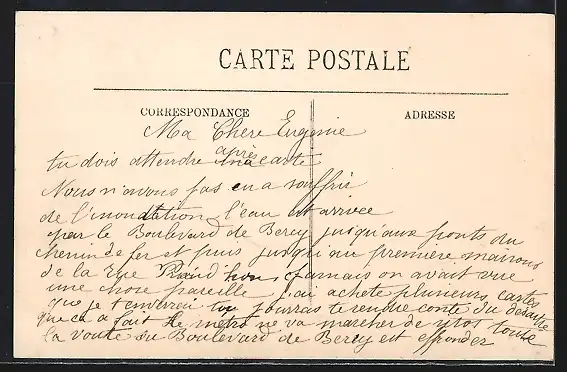 CARTE POSTALE
CORRESPONDANCE
ADRESSE
Ma Chere Eugenie
tu dois attendre après ma carte
Nous n'avons pas eu a souffrir
de l'inondation, l'eau est arrivee
par le Boulevard de Bercy jusqu'aux ponts du
chemin de fer et puis jusqu'au première maisons
de la rue jamais on avait vue
une chose pareille j'ai acheté plusieurs cartes
que je t'enverai tu pourras te rendre conte du désastre
que ca a fait le metro ne va marcher de sitos toute
la voute du Boulevard de Bercy est effonder